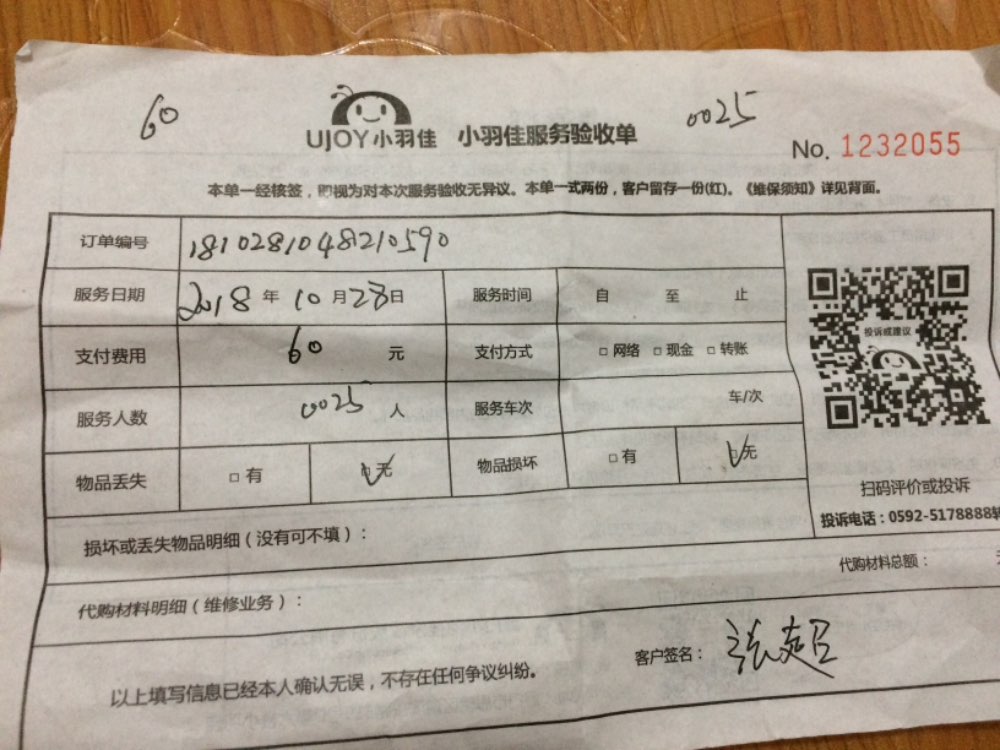 60
0025
UJOY小羽佳 小羽佳服务验收单
No. 1232055
本单一经核签，即视为对本次服务验收无异议。本单一式两份，客户留存一份(红)。《维保须知》详见背面。
订单编号 1810281048210590
服务日期 2018 年 10 月 28 日 服务时间 自 至 止
支付费用 60 元 支付方式 □ 网络 □ 现金 □ 转账
投诉或建议
服务人数 0025 人 服务车次 车/次
物品丢失 □ 有 □ 无 物品损坏 □ 有 □ 无
扫码评价或投诉
投诉电话：0592-5178888转
损坏或丢失物品明细（没有可不填）：
代购材料总额：
代购材料明细（维修业务）：
客户签名： 张超
以上填写信息已经本人确认无误，不存在任何争议纠纷。